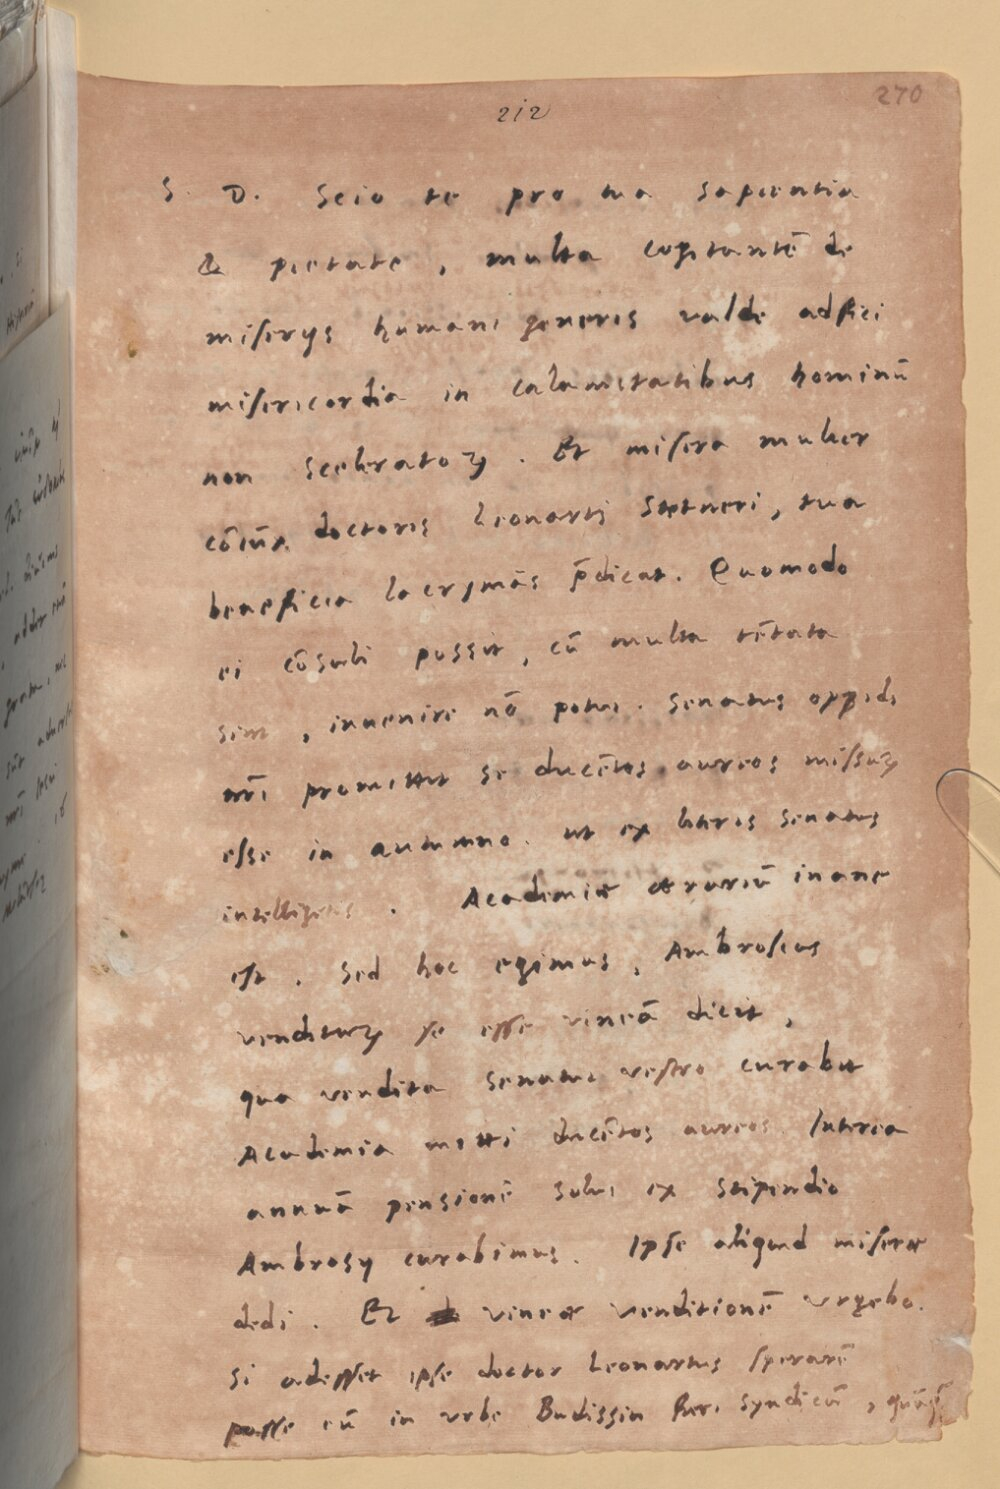 270
212
S. D. Scio te pro tua sapientia
& pietate, multa cogitantē de
miserys humani generis valde adfici
misericordia in calamitatibus hominū
non sceleratoꝝ. Et misera mulier
cōiūx doctoris Leonarti Stetneri, tua
beneficia lacrymās p̄dicat. Quomodo
ei cōsuli possit, cū multa tētata
sint, inuenire nō potui. Senatus oppidi
nr̄i promittit se ducētos aureos missuꝝ
esse in autumno. ut ex literis senatus
intelligetis. Academiæ ærariū inane
est. Sed hoc egimus, Ambrosius
vendituꝝ se esse vineā dicit,
qua vendita Senatui vestro curabit
Academia mitti ducētos aureos. Interea
annuā pensionē solui ex stipendio
Ambrosy curabimus. Ipse aliquid miseræ
dedi. Et vineæ venditionē vrgebo.
Si adesset ipse doctor Leonartus sperarē
posse eū in vrbe Budissin fieri syndicū,